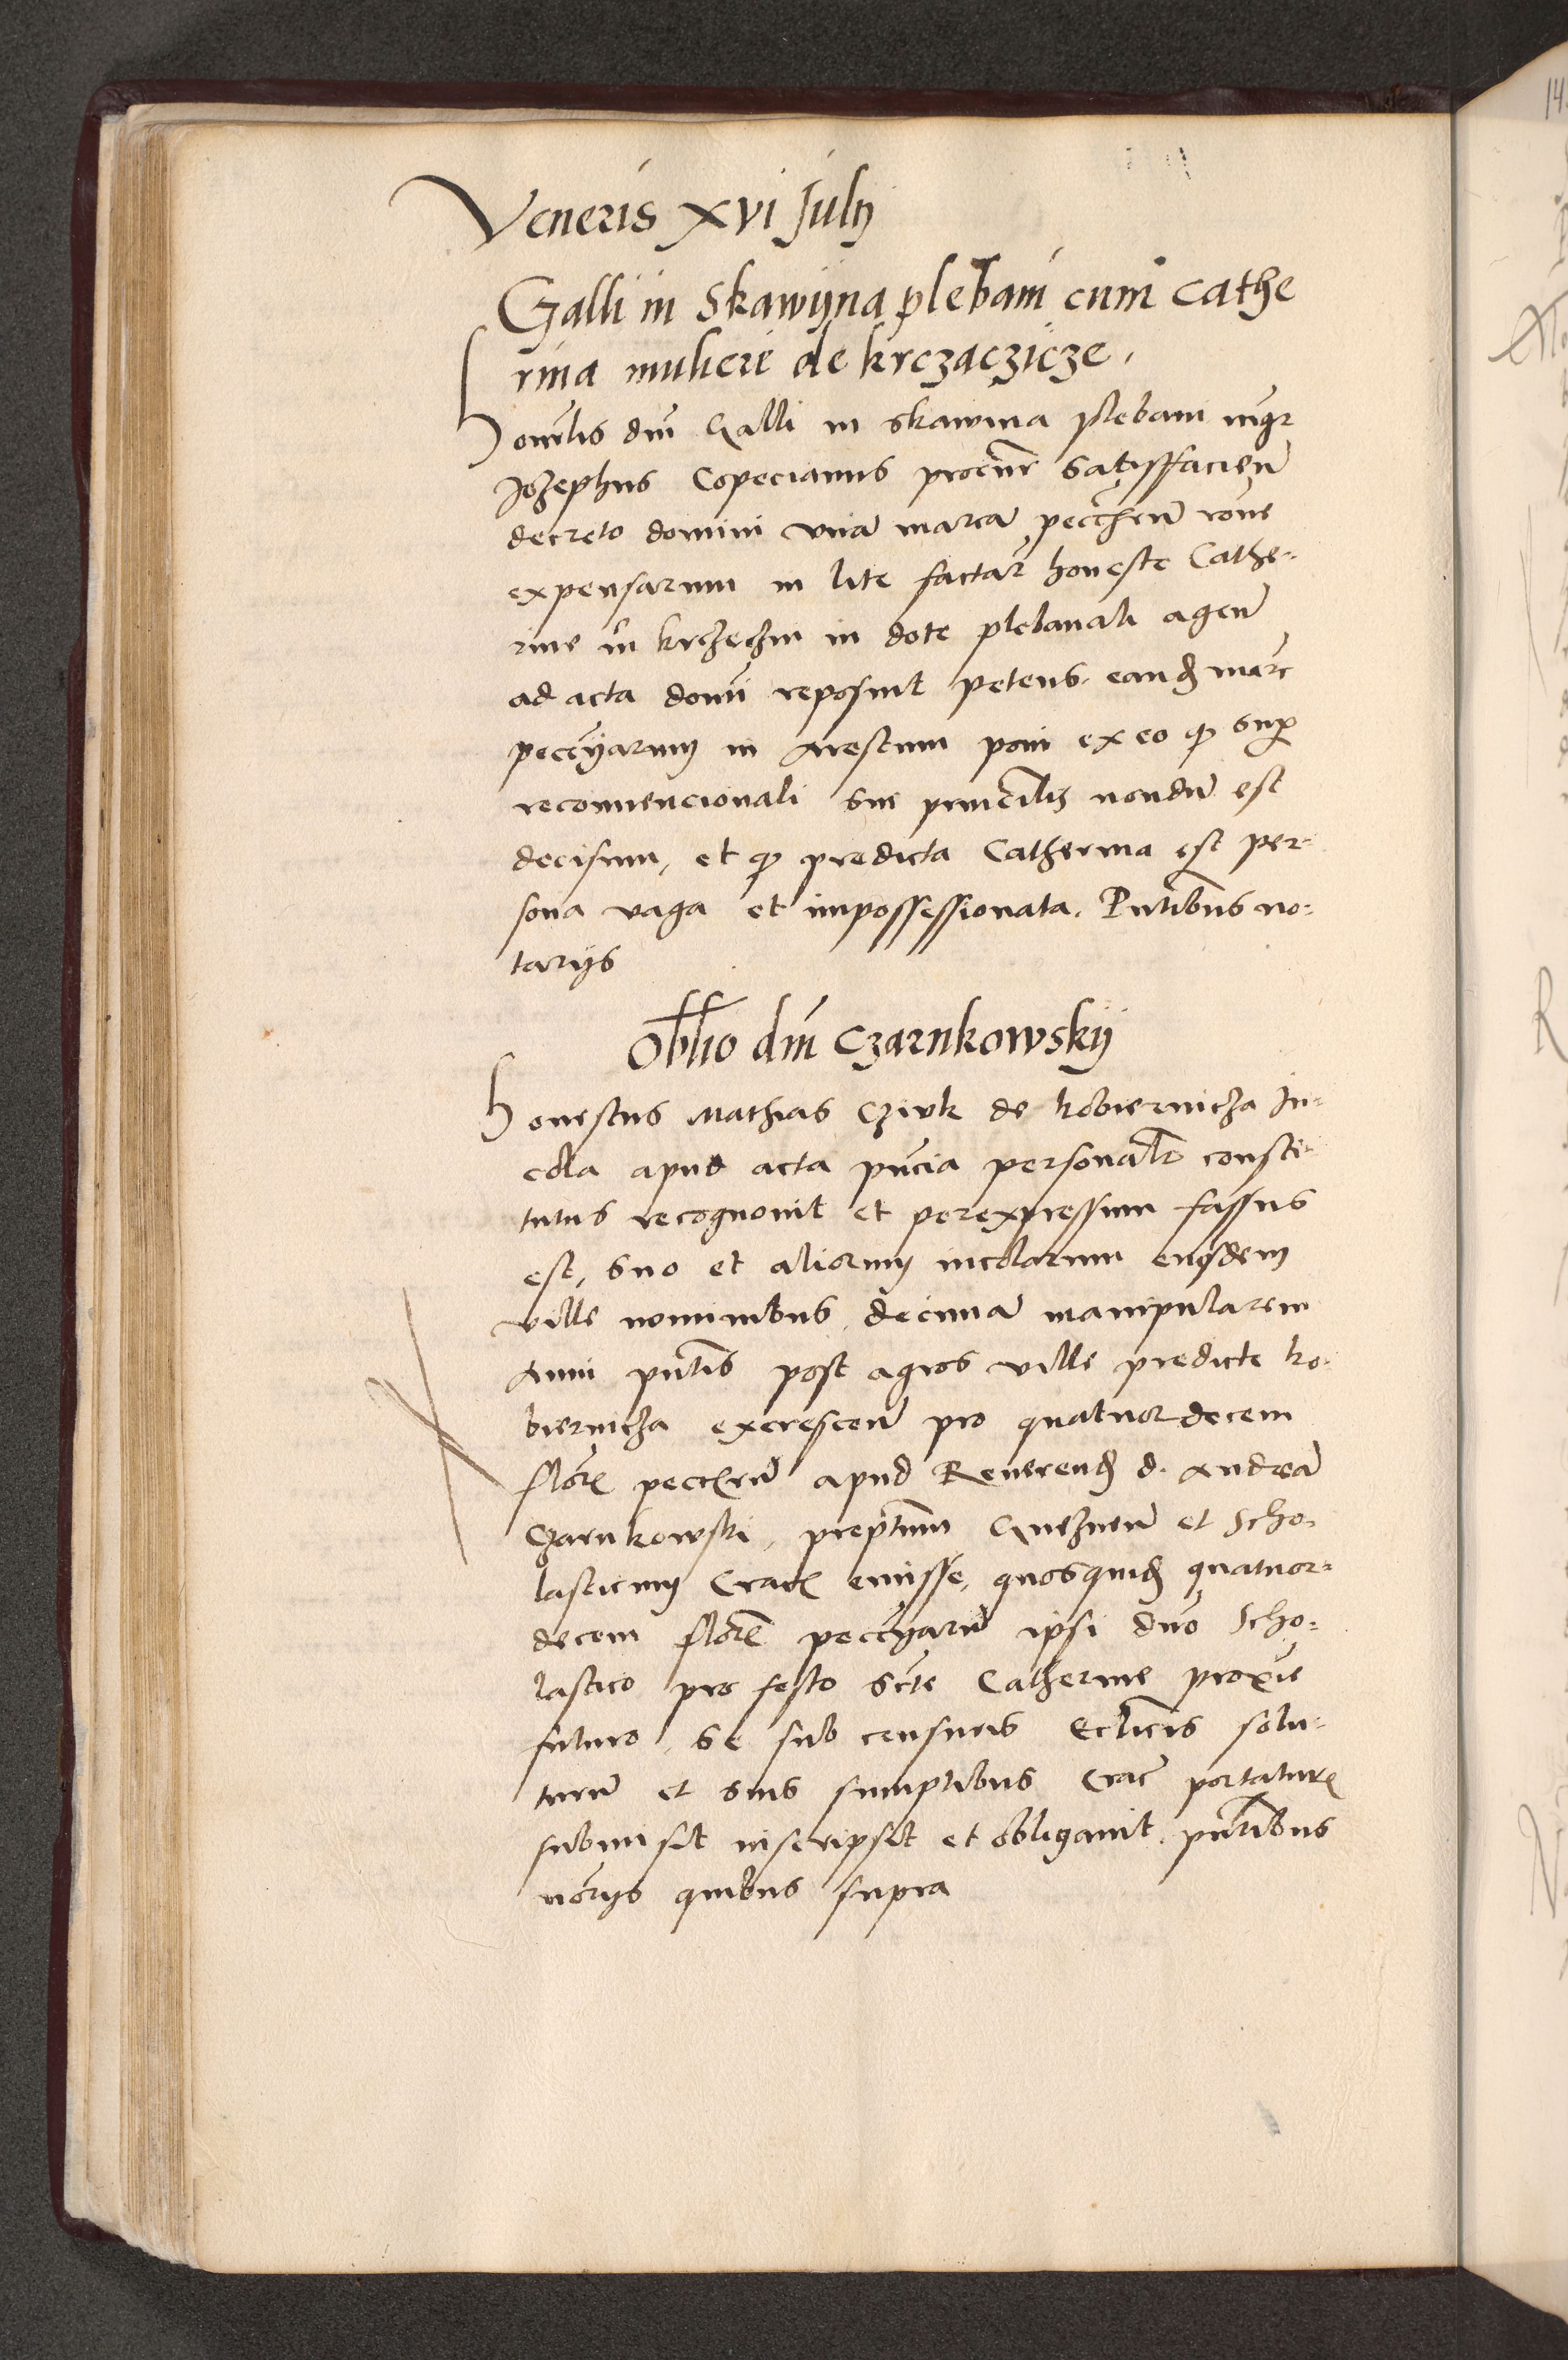 Veneris xvi Julij
Galli in Skawijna plebani cum Cathe
rina muliere de krczaczicze.
Honorlis dni Galli in skawina plebani mgr
Jozephus Copecianus procur satisffacien
decreto domini vna marca pecchrum rone
expensarum in lite factar honeste Cathe-
rine in krzhechin in dote plebanali agen
ad acta domi reposuit petens eand marc
peccyarum in Arestum poni ex eo q sup
reconuencionali sui princilis nondu est
decisum, et q predicta Catherina est per-
sona vaga et impossessionata. Pntibus no-
tarijs
Obllo dni Czarnkowskij
Honestus Mathias Cziuk de kobiernicza in-
cola apud acta pncia personalr consti-
tutus recognouit et per expressum fassus
est, suo et aliorum incolarum eiusdem
ville nominibus, decima manipularem
Anni pntis post agros ville predicte ko-
biernicza excrescen pro quatuordecem
flore pecchru apud Reuerend d. Andrea
Czarnkowski, preptum Gneznen et Scho-
lasticum Crac emisse, quosquid quatuor-
decem flore peccyaru ipsi dno Scho-
lastico pro festo scte Catherine proxie
futuro, se sub censuris Ecclicis solu-
turu et suis sumptibus Crac portatur
submisit inscripsit et obligauit. pntibus
norijs quibus supra